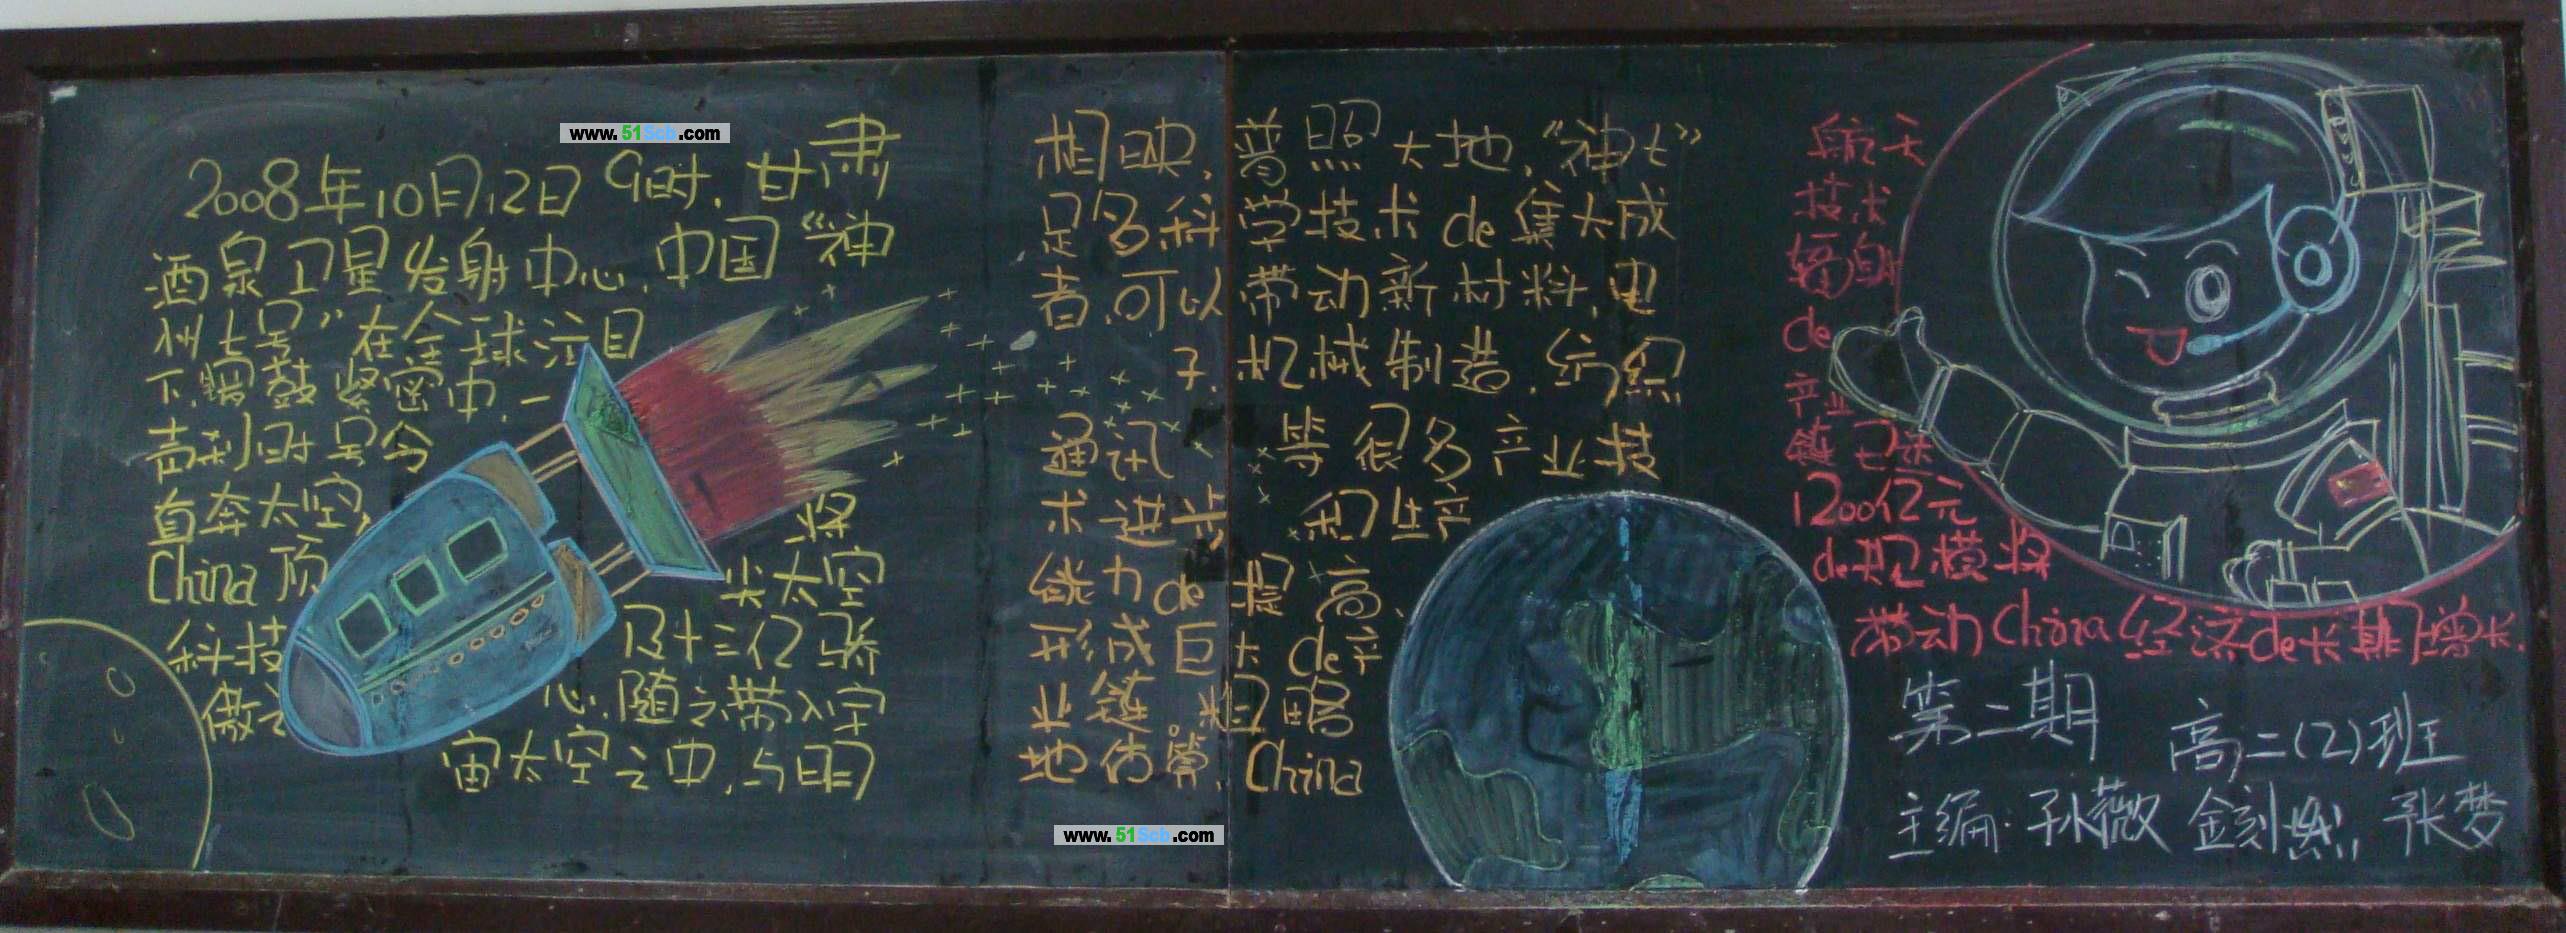 www.51Scb.com
2008年10月12日9时,甘肃
酒泉卫星发射中心,中国“神
州七号”在全球注目
下,锣鼓紧密中,一
声到时号令
直奔太空,将
China顶尖太空
科技及十三亿骄
傲之心,随之带入宇
宙太空之中,与日月
相映,普照大地,“神七”
是多科学技术de集大成
者,可以带动新材料,电
子,机械制造,纺织
通讯等很多产业技
术进步和生产
能力de提高,
形成巨大de产
业链。粗略
地估算,China
www.51Scb.com
航天
技术
辐射
de
产业
链已达
1200亿元
de规模将
带动China经济de长期增长.
第二期
高二(2)班
主编:孙薇 金刻 张梦